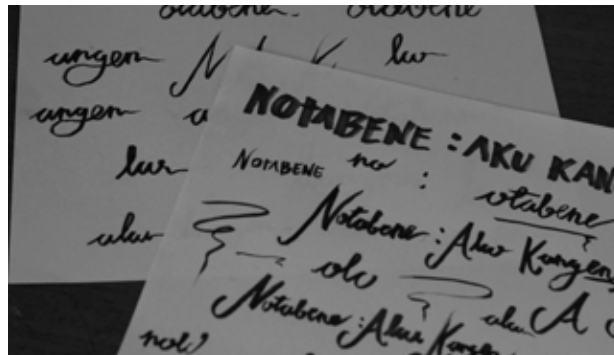 otabene. otabene
angen N
angen a
NOTABENE : AKU KAN
NOTABENE no :
otabene
Notabene : Aku Kangen
aku A
Notabene : Aku Kangen
aku